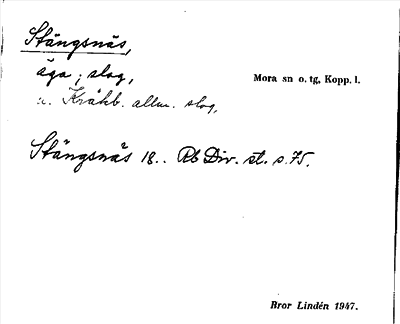 Stängsnäs,
äga; slog,
Mora sn o. tg, Kopp. l.
u. Kråkb. allm. slog,
Stängsnäs 18.. Rb Div. st. s. 75.
Bror Lindén 1947.